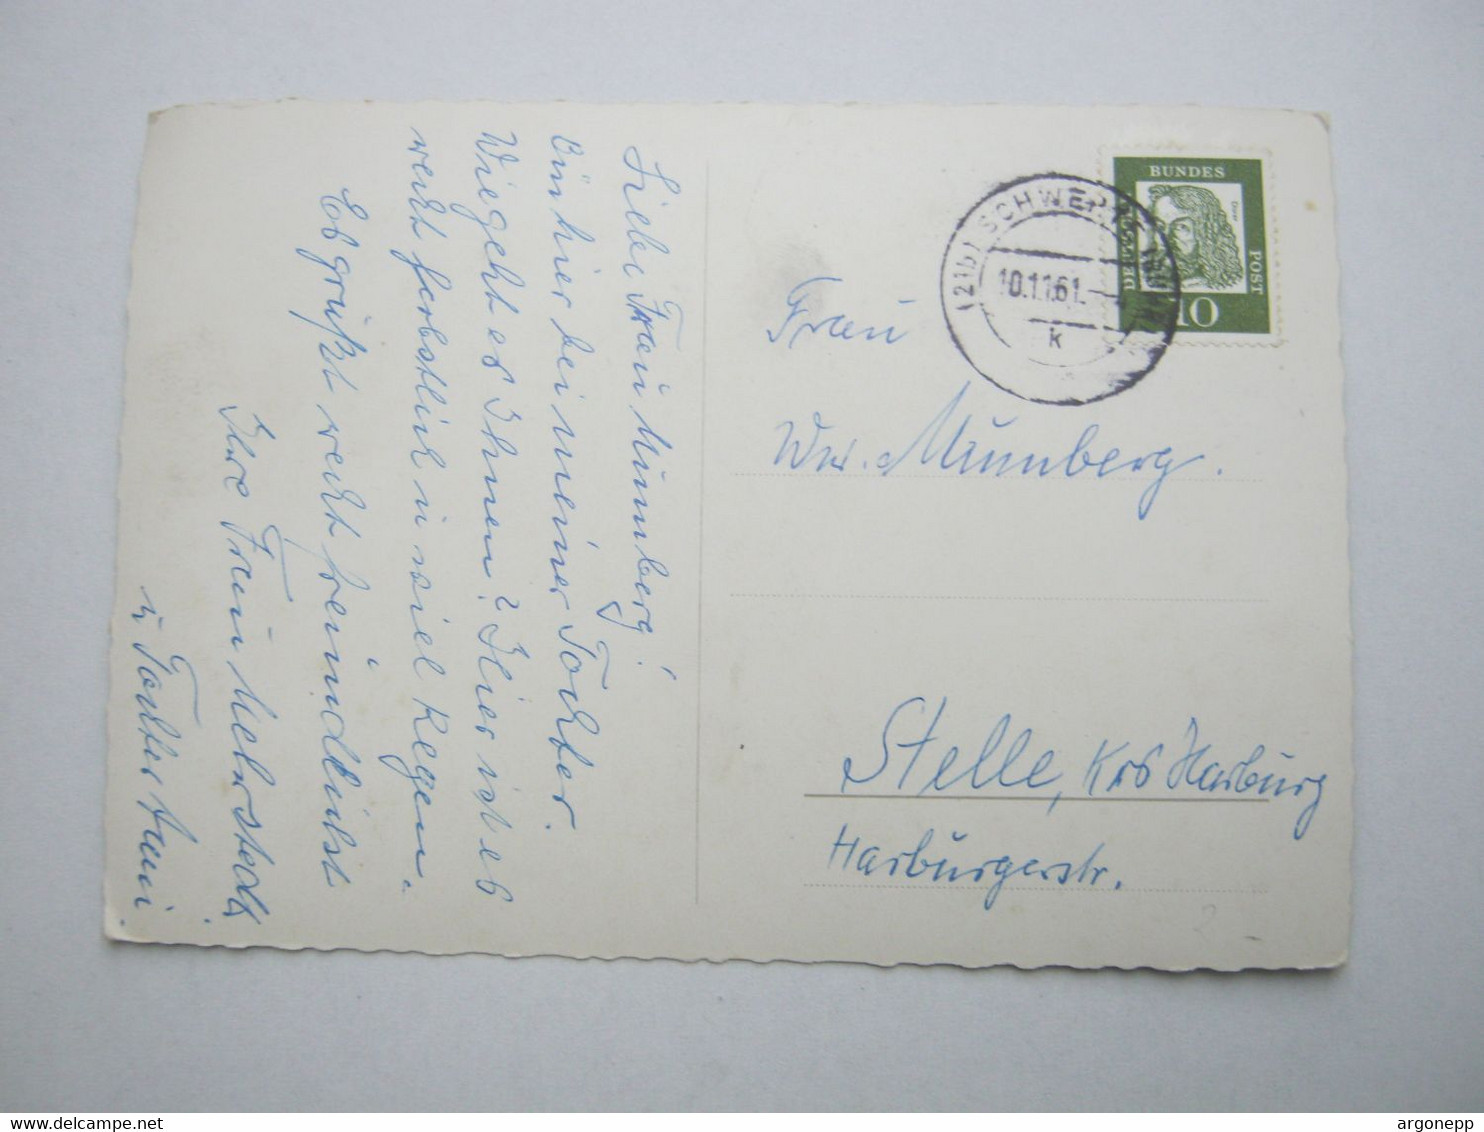 Liebe Frau Mumberg!
Bin hier bei meiner Tochter.
Wie geht es Ihnen? Hier ist es
recht herbstlich u viel Regen.
Es grüßt recht freundlichst
Ihre Frau
u Tochter
BUNDES
POST
10
(21b) SCHWERTE
10.11.61
k
Frau
Ww. Mumberg.
Stelle, Krs Harburg
Harburgerstr.
2
argonepp